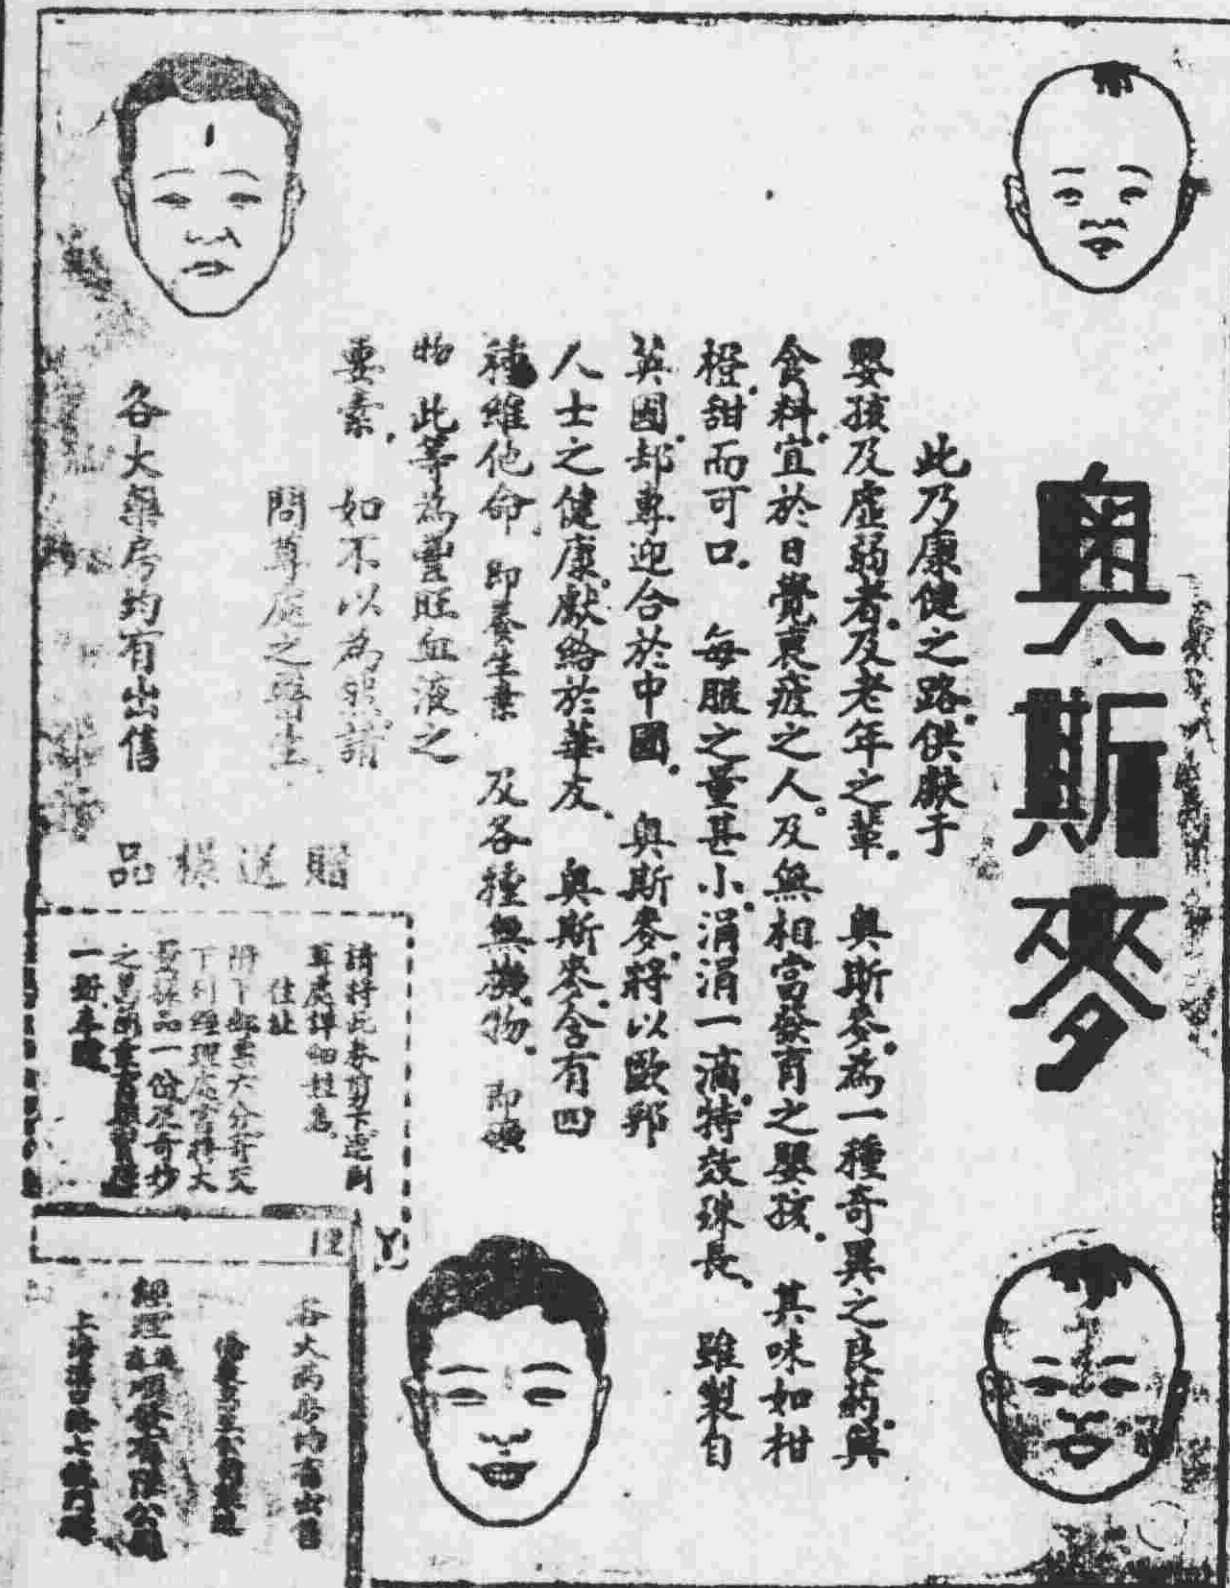 奧斯麥
此乃康健之路。供獻于
嬰孩及虛弱者。及老年之輩。 奧斯麥。為一種奇異之良药。與
食料。宜於日覺衰疲之人。及無相當發育之嬰孩。 其味如柑
橙。甜而可口。 每服之量甚小。涓涓一滴。特效殊長。 雖製自
英國。却專迎合於中國。 奧斯麥。將以歐邦
人士之健康。獻給於華友。 奧斯麥。含有四
種維他命。即養生素 及各種無機物。 即礦
物 此等為豐旺血液之
要素。 如不以為然。請
問尊處之醫生。
各大藥房均有出售
贈送樣品
請將此券剪下。逕函
住址
附下郵票六分寄交
下列經理處當將大
12
各大药房均有出售
經理
上海